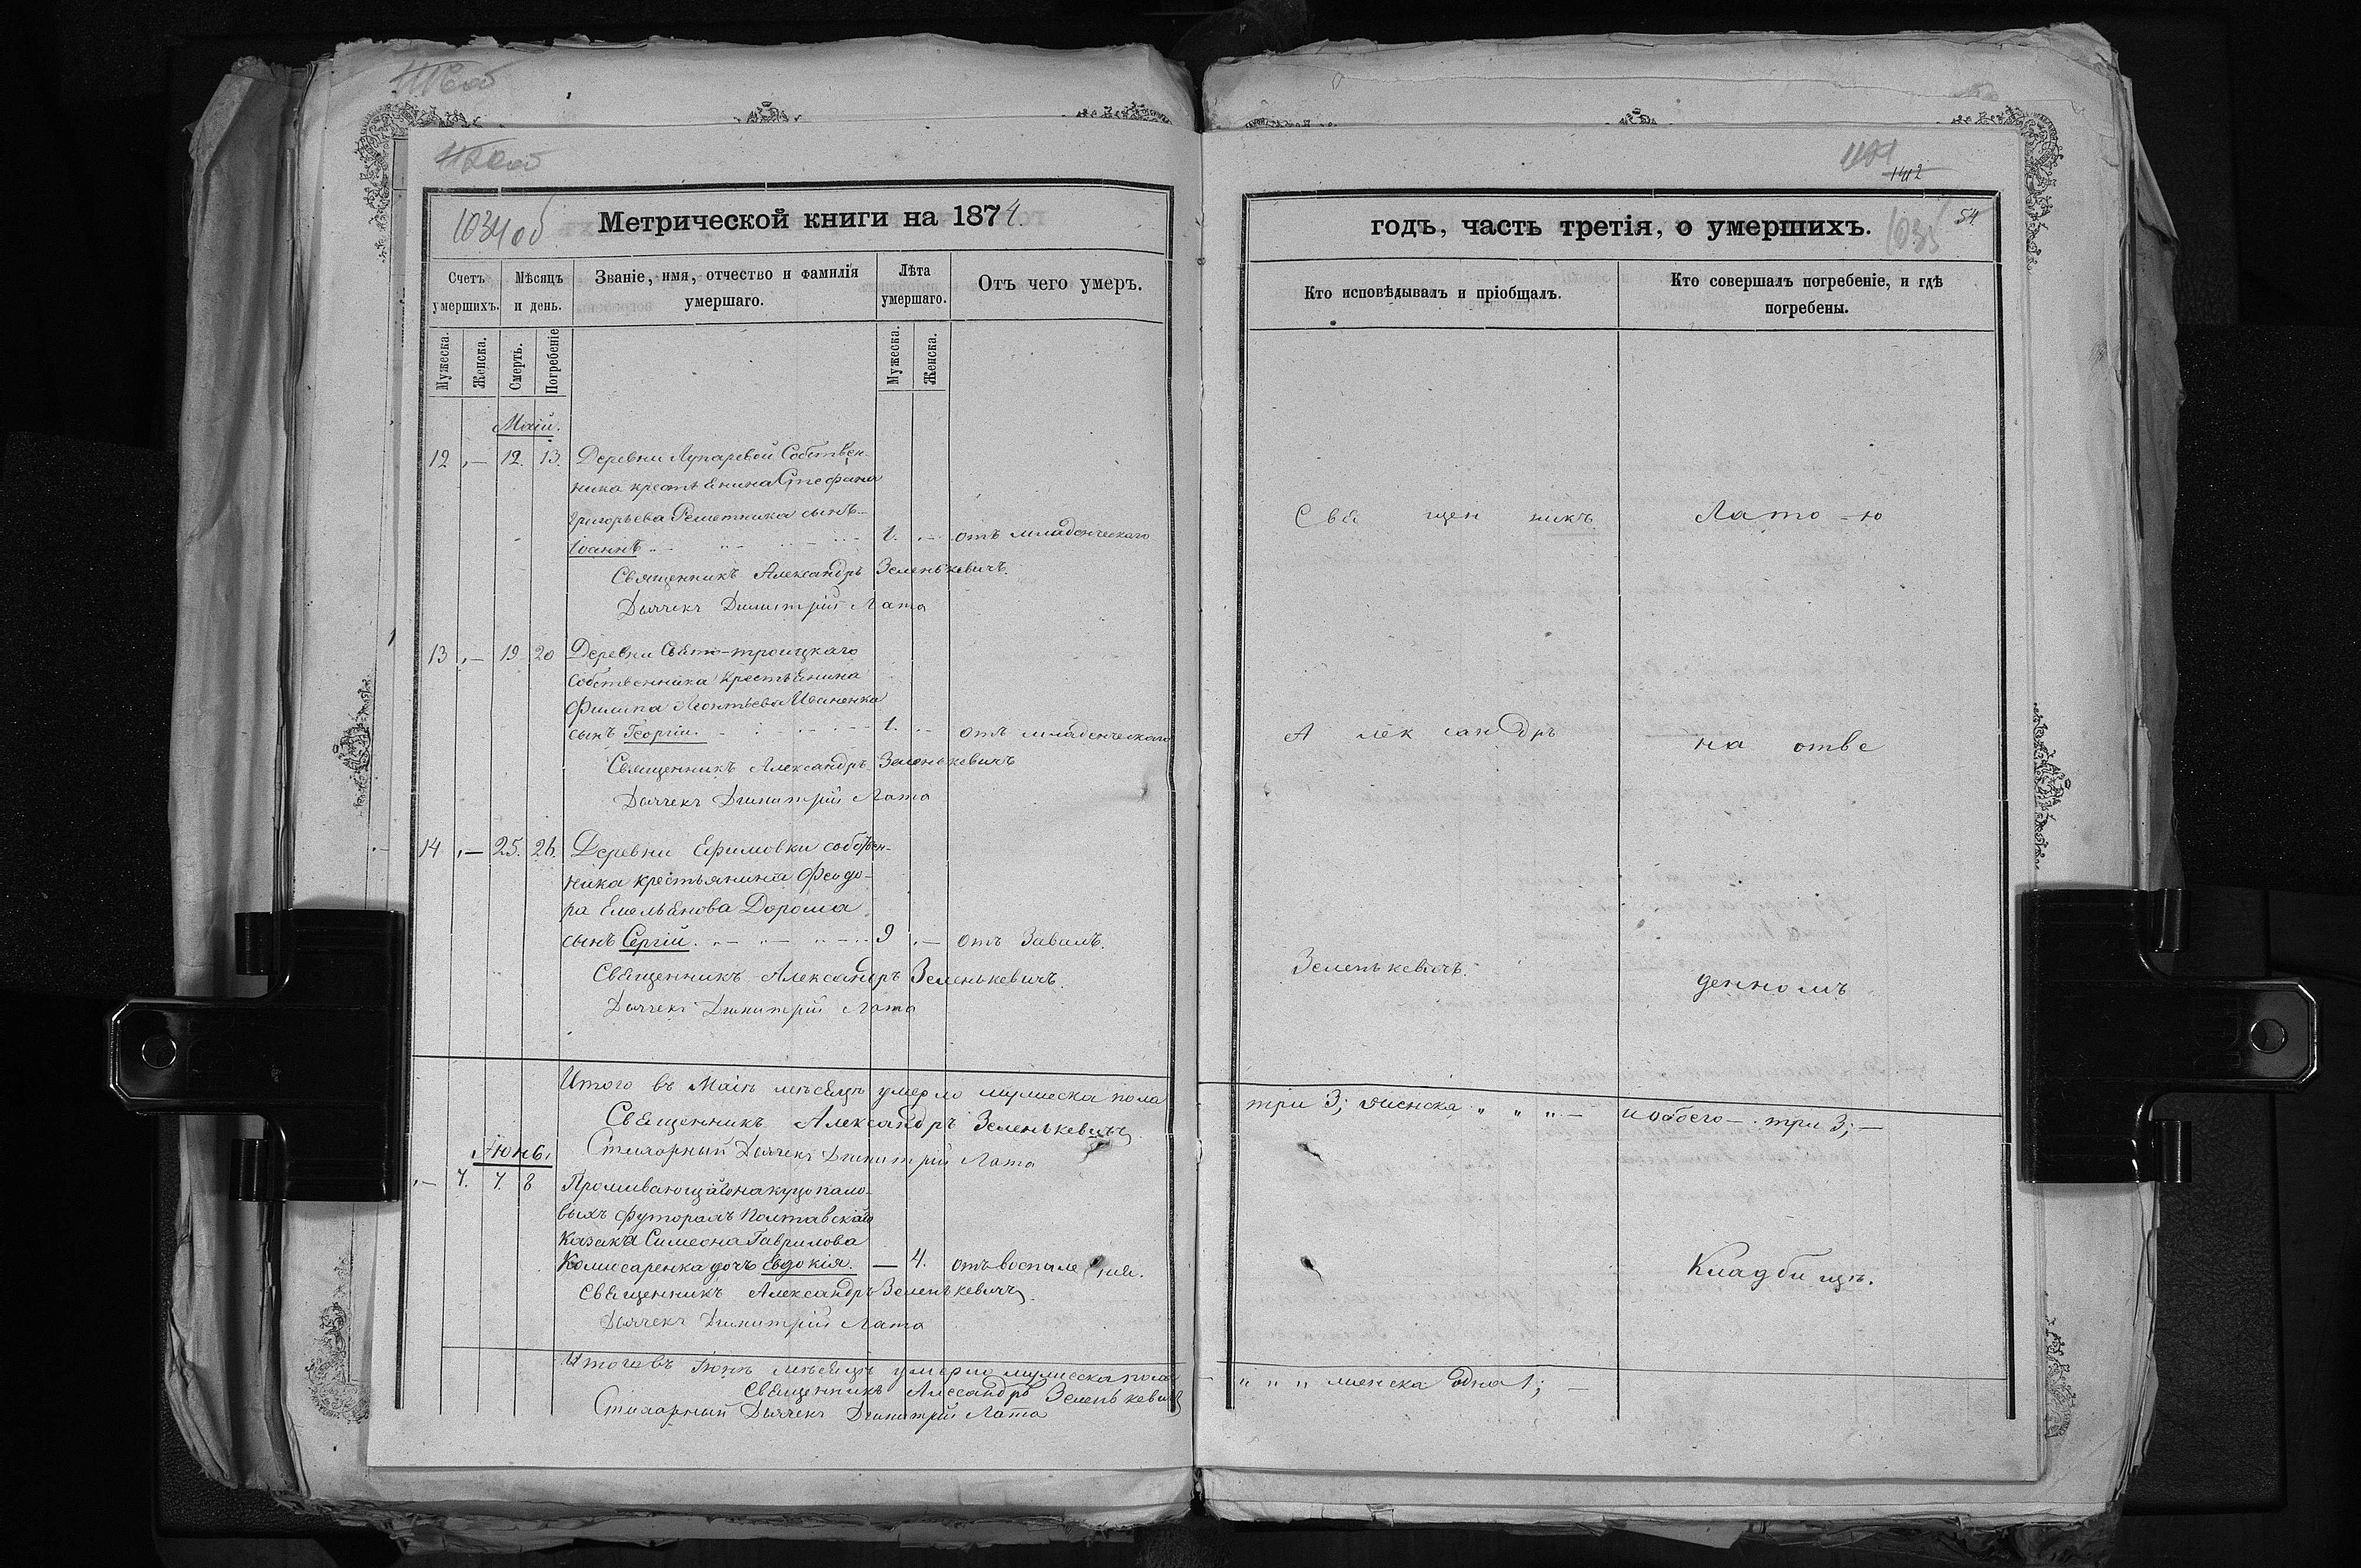 1034 об
Метрической книги на 1874
Счетъ умершихъ.
Мѣсяцъ и день.
Званіе, имя, отчество и фамилія умершаго.
Лѣта умершаго.
Отъ чего умеръ.
Мужеска.
Женска.
Смерть.
Погребеніе
Мужеска.
Женска.
Маій.
12 „— 12. 13. Деревни Лупаревой Собствен-
ника крестьянина Стефана
Григорьева Решетника сынъ
Іоаннъ 1. „— отъ младенческаго
Священникъ Александръ Зеленькевичъ.
Дьячекъ Димитрій Лата
13 „— 19 20 Деревни Свято-троицкаго
Собственника крестьянина
Филипа Леонтьева Иваненка
сынъ Георгій. 1. „— отъ младенческаго
Священникъ Александръ Зеленькевичъ
Дьячекъ Димитрій Лата
14 „— 25. 26. Деревни Ефимовки собствен-
ника крестьянина Феодо-
ра Емельянова Дороша
сынъ Сергій. 9 „— отъ Завалъ.
Священникъ Александръ Зеленькевичъ.
Дьячекъ Димитрій Лата
Итого въ Маіѣ мѣсяцѣ умерло мужеска пола
Священникъ Александръ Зеленькевичъ
Стихарный Дьячекъ Димитрій Лата
Іюнь.
„— 7. 7. 8 Проживающаго на
выхъ футорахъ Полтавскаго
Казака Симеона Гаврилова
Комисаренка дочь Евдокія. — 4. отъ воспаленія.
Священникъ Александръ Зеленькевичъ.
Дьячекъ Димитрій Лата
Итого въ Іюнѣ мѣсяцѣ умерло мужеска пола
Священникъ Александръ Зеленькевичъ
Стихарный Дьячекъ Димитрій Лата
1412
годъ, часть третія, о умершихъ.
1035
54
Кто исповѣдывалъ и пріобщалъ.
Кто совершалъ погребеніе, и гдѣ погребены.
Свя щен никъ
Лато-ю
А лек сандръ
на отве
Зеленькевичъ.
денномъ
три 3; женска „ „ „ — и обоего — три 3; —
Кладби щѣ.
„ „ „ женска одна 1; —